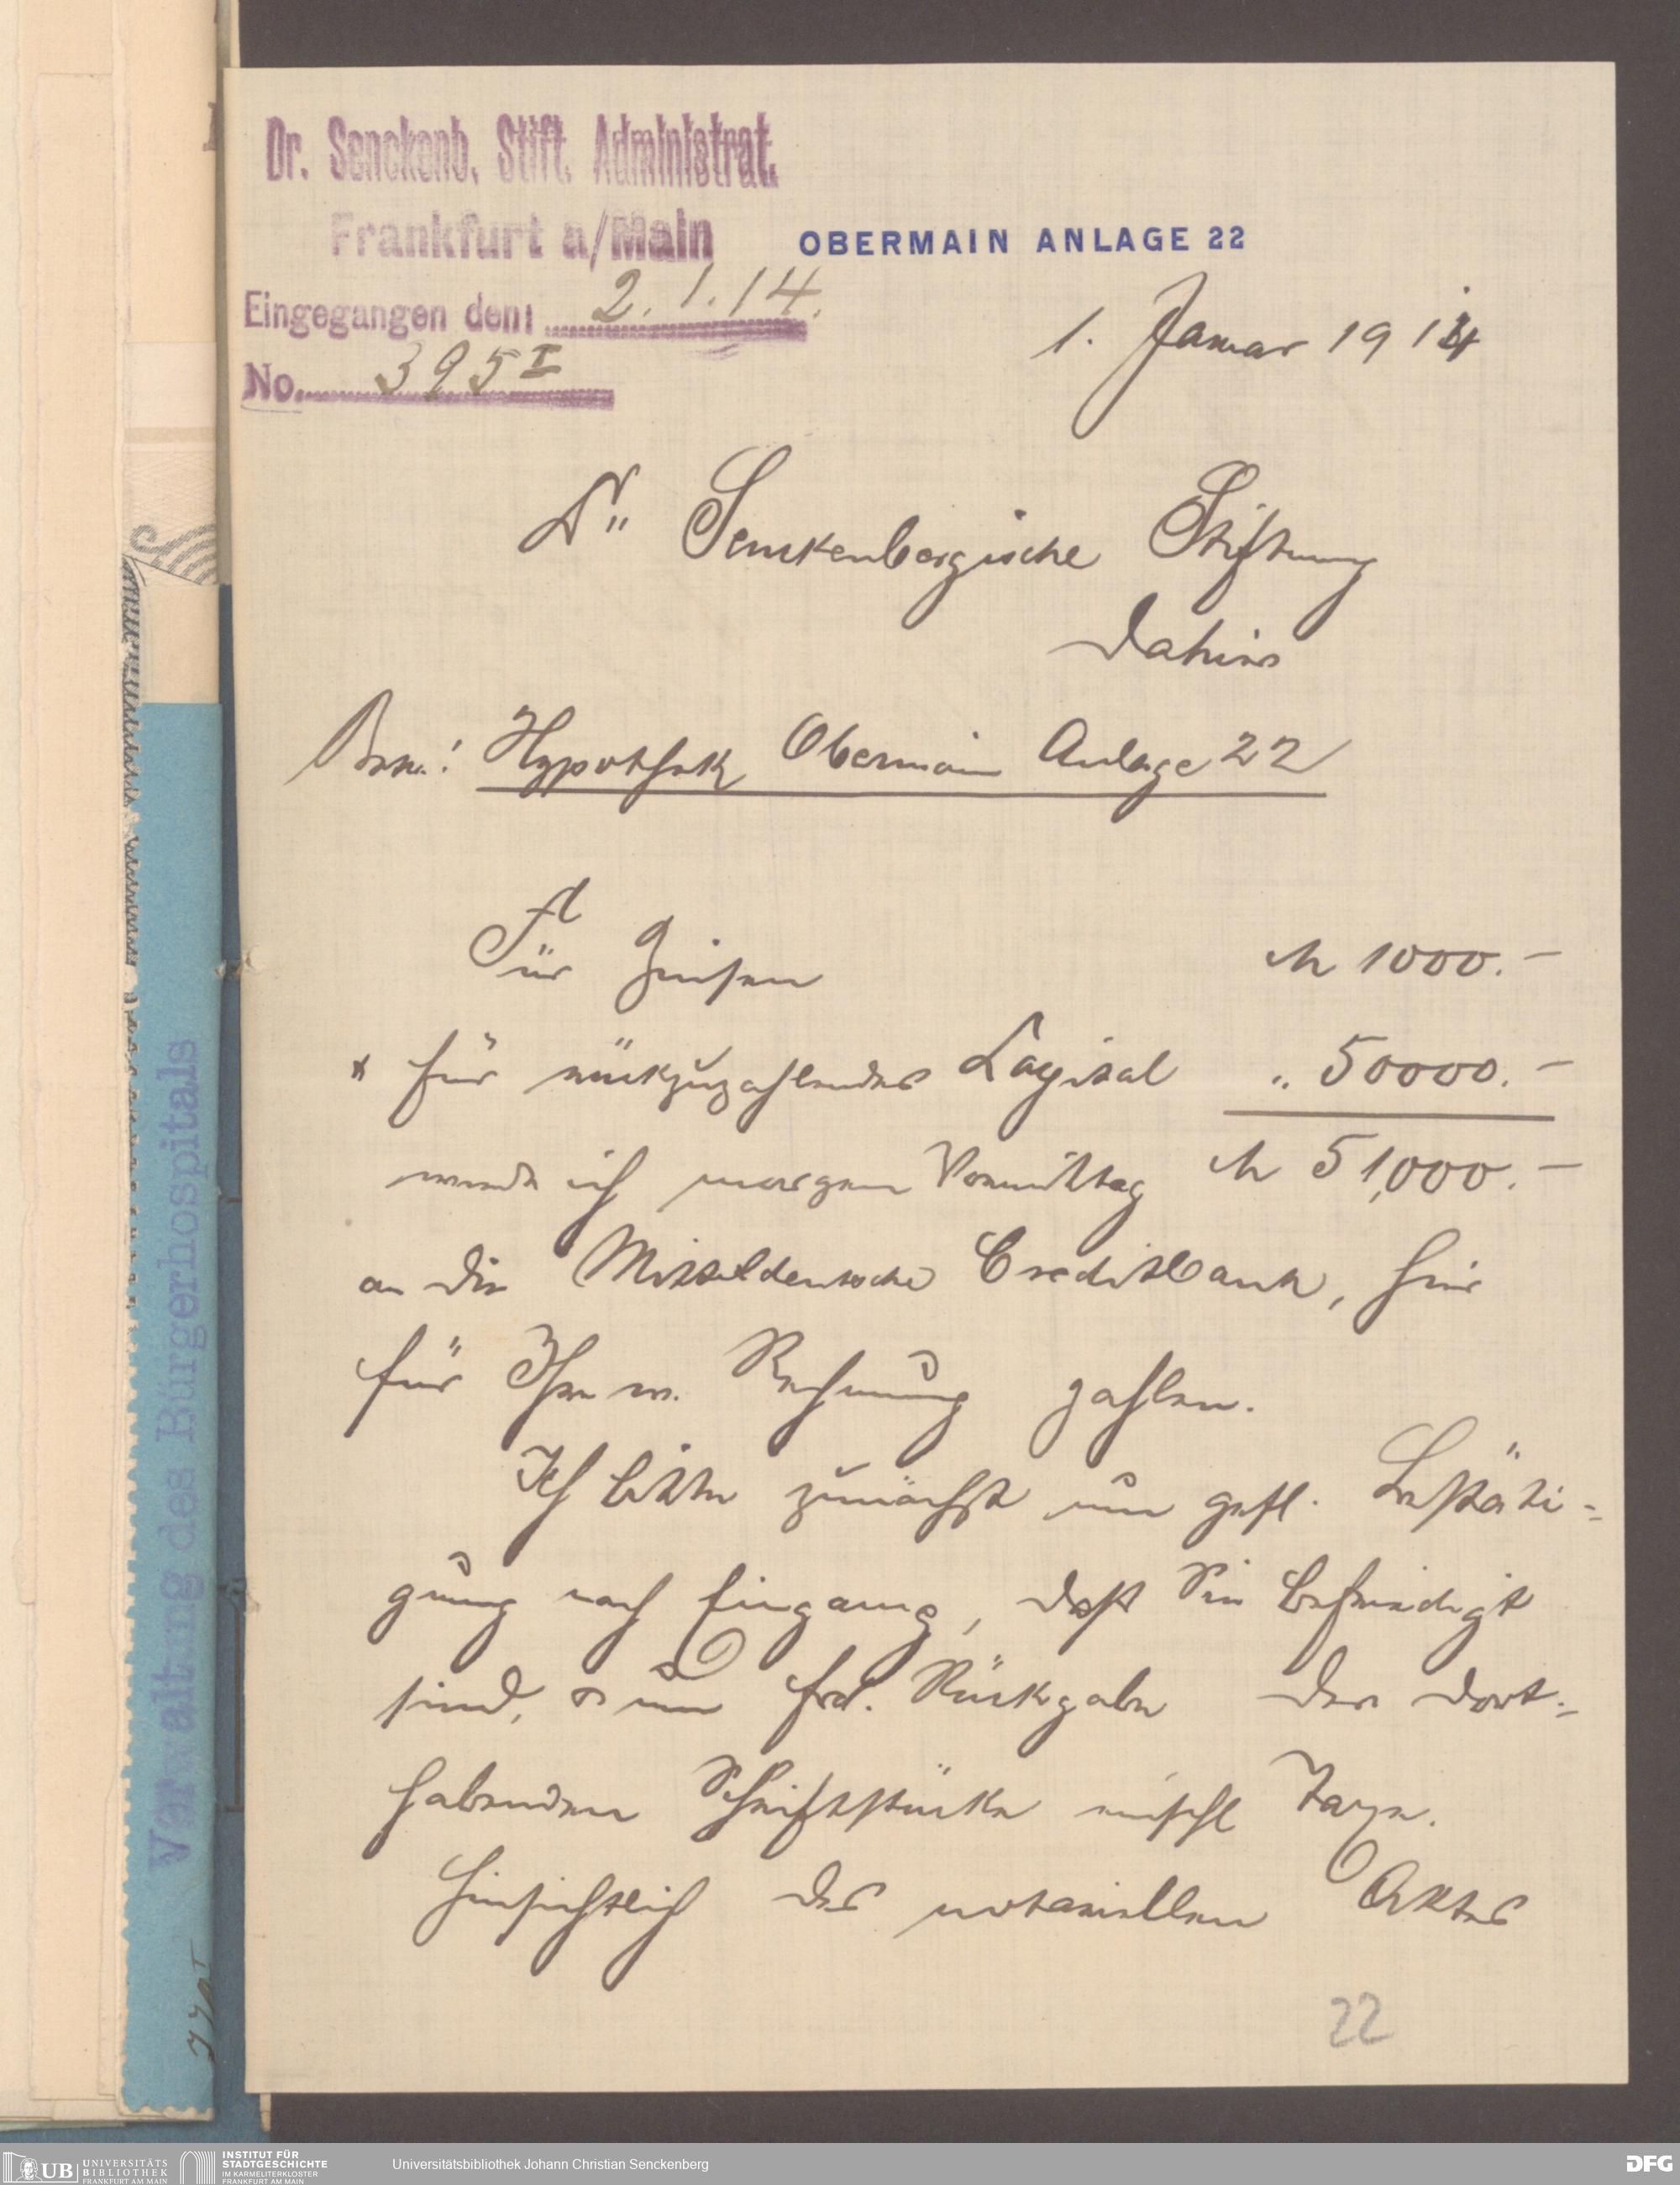 Dr. Senckenb. Stift. Administrat.
Frankfurt a/Main
OBERMAIN ANLAGE 22
Eingegangen den: 2.1.14.
No. 395 I
1. Januar 1914
Dr. Senckenbergische Stiftung
Dahier
Betr.: Hypothek Obermain Anlage 22
Für Zinsen M 1000.–
" für rückzuzahlendes Capital " 50000.–
werde ich morgen Vormittag M 51,000.–
an die Mitteldeutsche Creditbank, hier
für Ihre w. Rechnung zahlen.
Ich bitte zunächst um gefl. Bestäti-
gung nach Eingang, daß Sie befriedigt
sind, & um frdl. Rückgabe der dort-
habenden Schriftstücke einschl Taxe.
Hinsichtlich des notariellen Aktes
22
Verwaltung des Bürgerhospitals
UB UNIVERSITÄTS
BIBLIOTHEK
FRANKFURT AM MAIN
INSTITUT FÜR
STADTGESCHICHTE
IM KARMELITERKLOSTER
FRANKFURT AM MAIN
Universitätsbibliothek Johann Christian Senckenberg
DFG